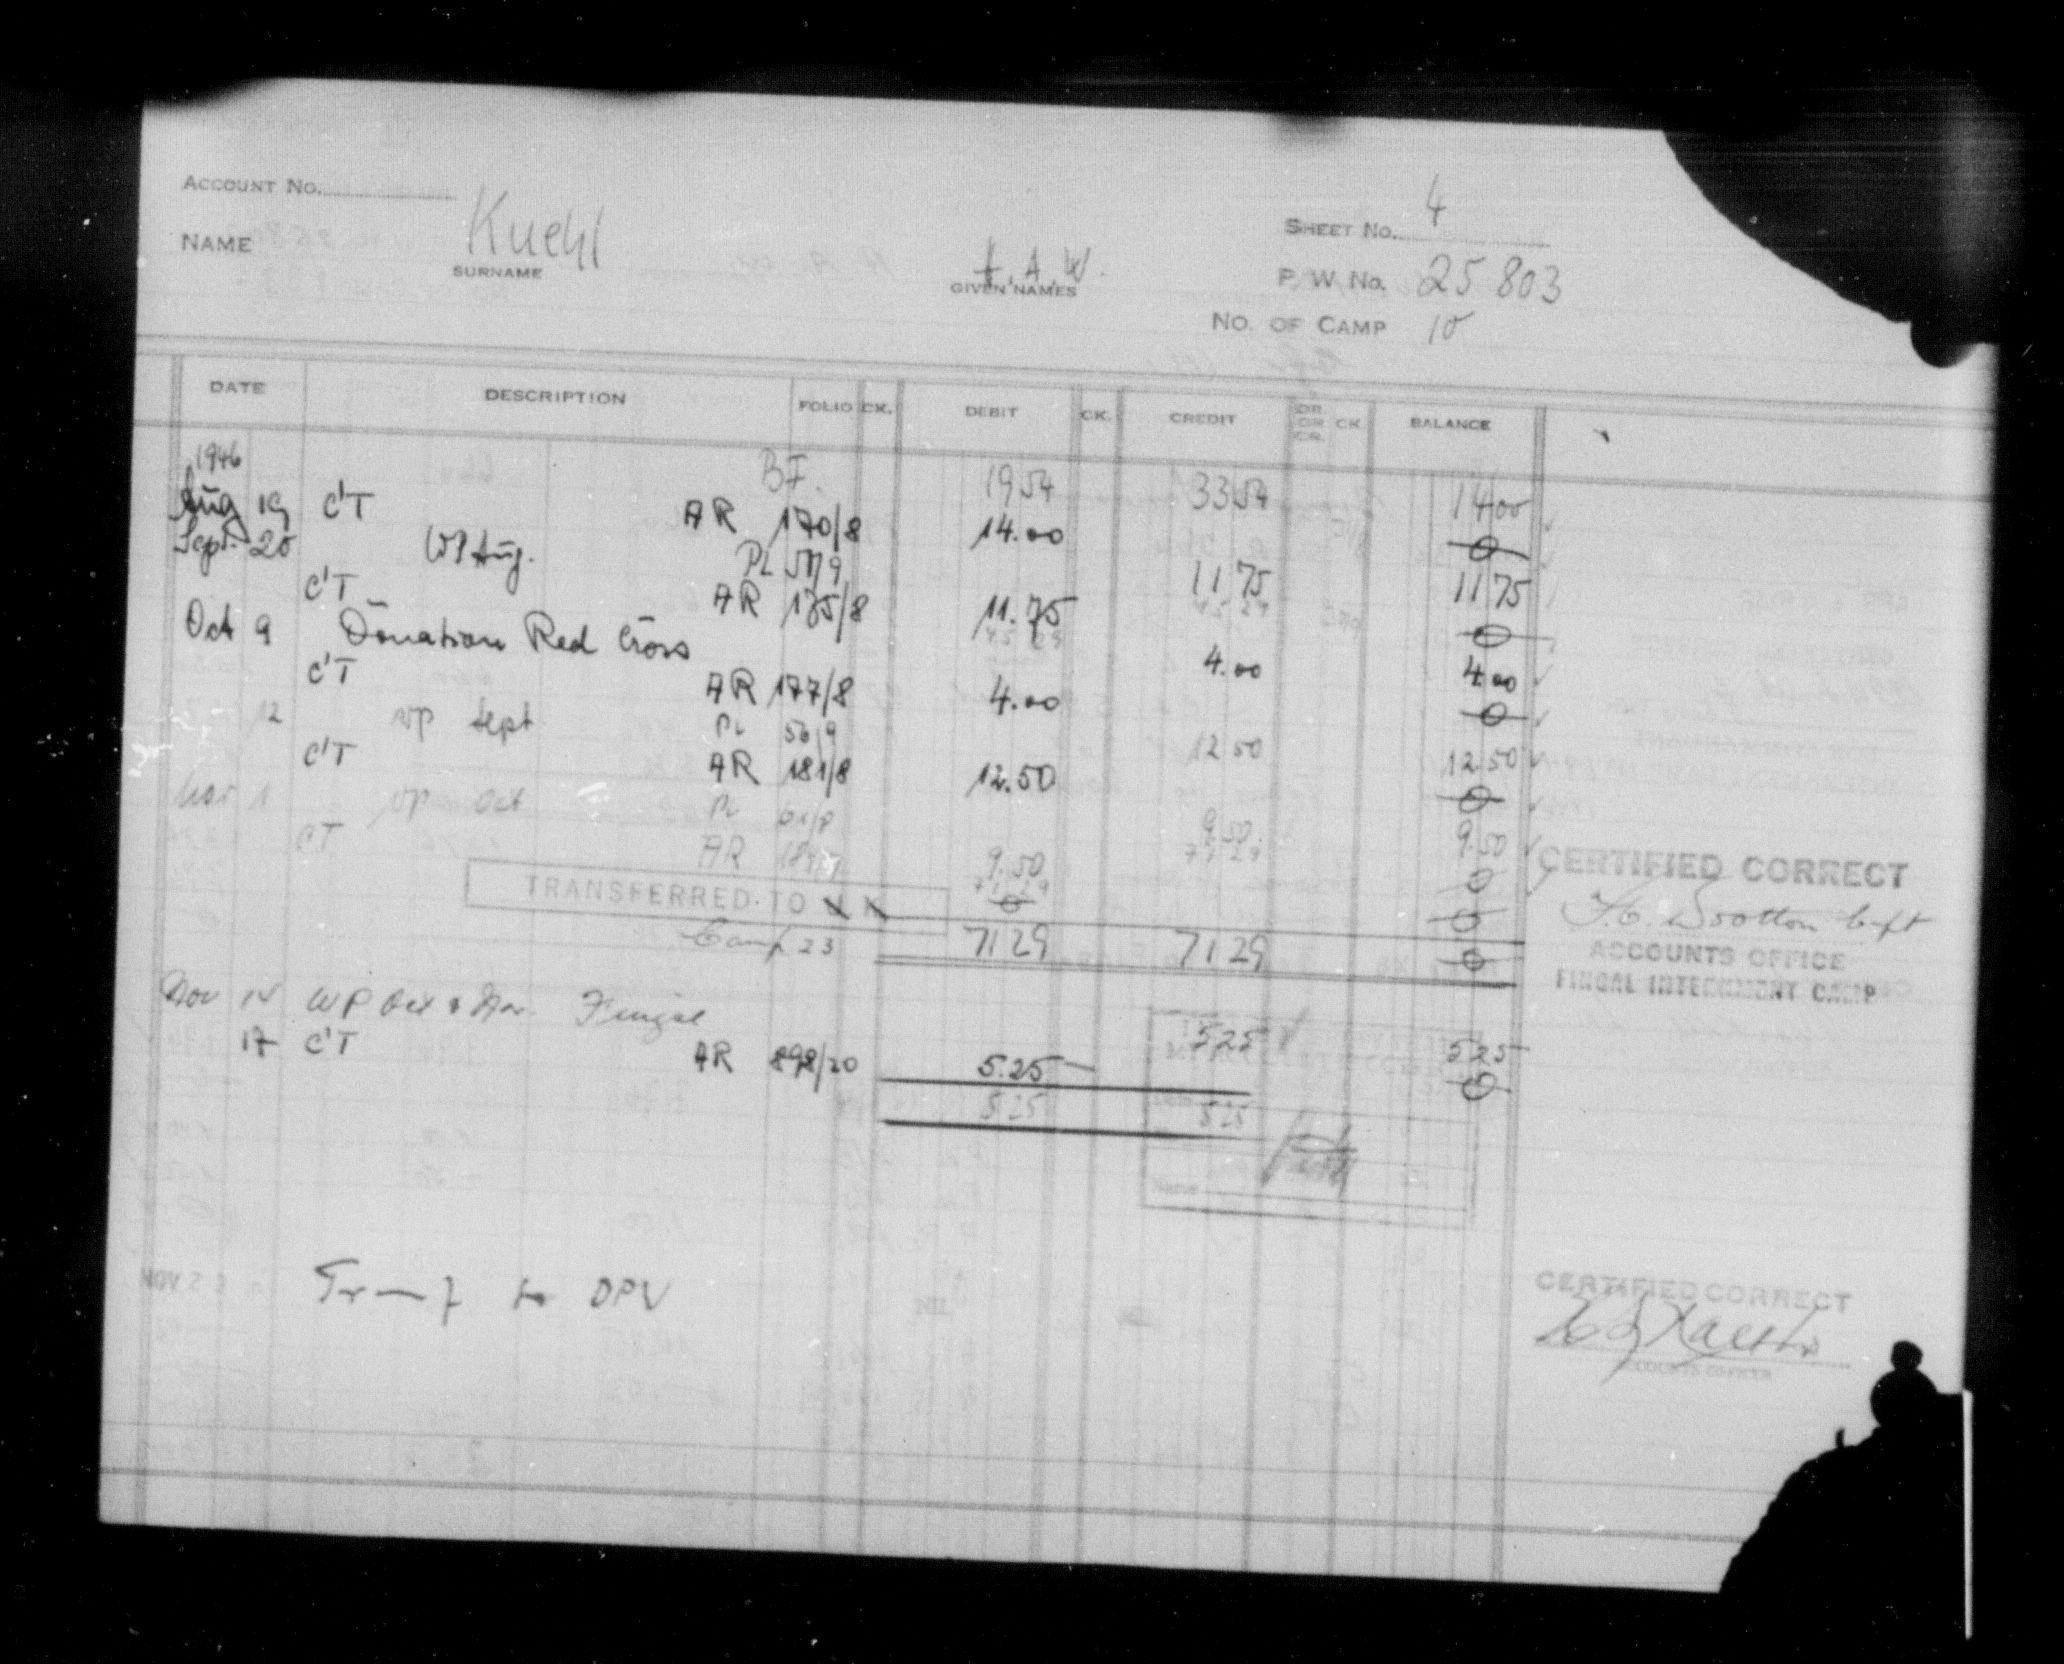 ACCOUNT No.
NAME Kuehl
SURNAME
A. W.
GIVEN NAMES
SHEET No. 4
P. W. No. 25 803
No. OF CAMP 10
DATE DESCRIPTION FOLIO CK. DEBIT CK. CREDIT DR. OR CR. CK. BALANCE
1946 BF. 19 54 33 54 14 00
Aug 19 C'T AR 170/8 14.00 0
Sept. 20 WP Aug. PL 57/9 11 75 11 75
C'T AR 175/8 11.75 0
45 29 45 29
Oct 9 Donation Red Cross 4.00 4.00
C'T AR 177/8 4.00 0
12 WP Sept PL 56/9 12 50 12 50
C'T AR 181/8 12.50 0
1 WP Oct PL 9.50 9.50
CT AR 9.50 0
71 29 71 29
TRANSFERRED TO 0 0
Camp 23 71 29 71 29 0
CERTIFIED CORRECT
Wootton Capt
ACCOUNTS OFFICE
FINGAL INTERNMENT CAMP
Nov WP Oct & Nov. Fingal 5 25 5 25
17 C'T AR 898/20 5.25 0
5 25 5 25
NOV 2 to DPV NIL NIL
CERTIFIED CORRECT
ACCOUNTS OFFICER